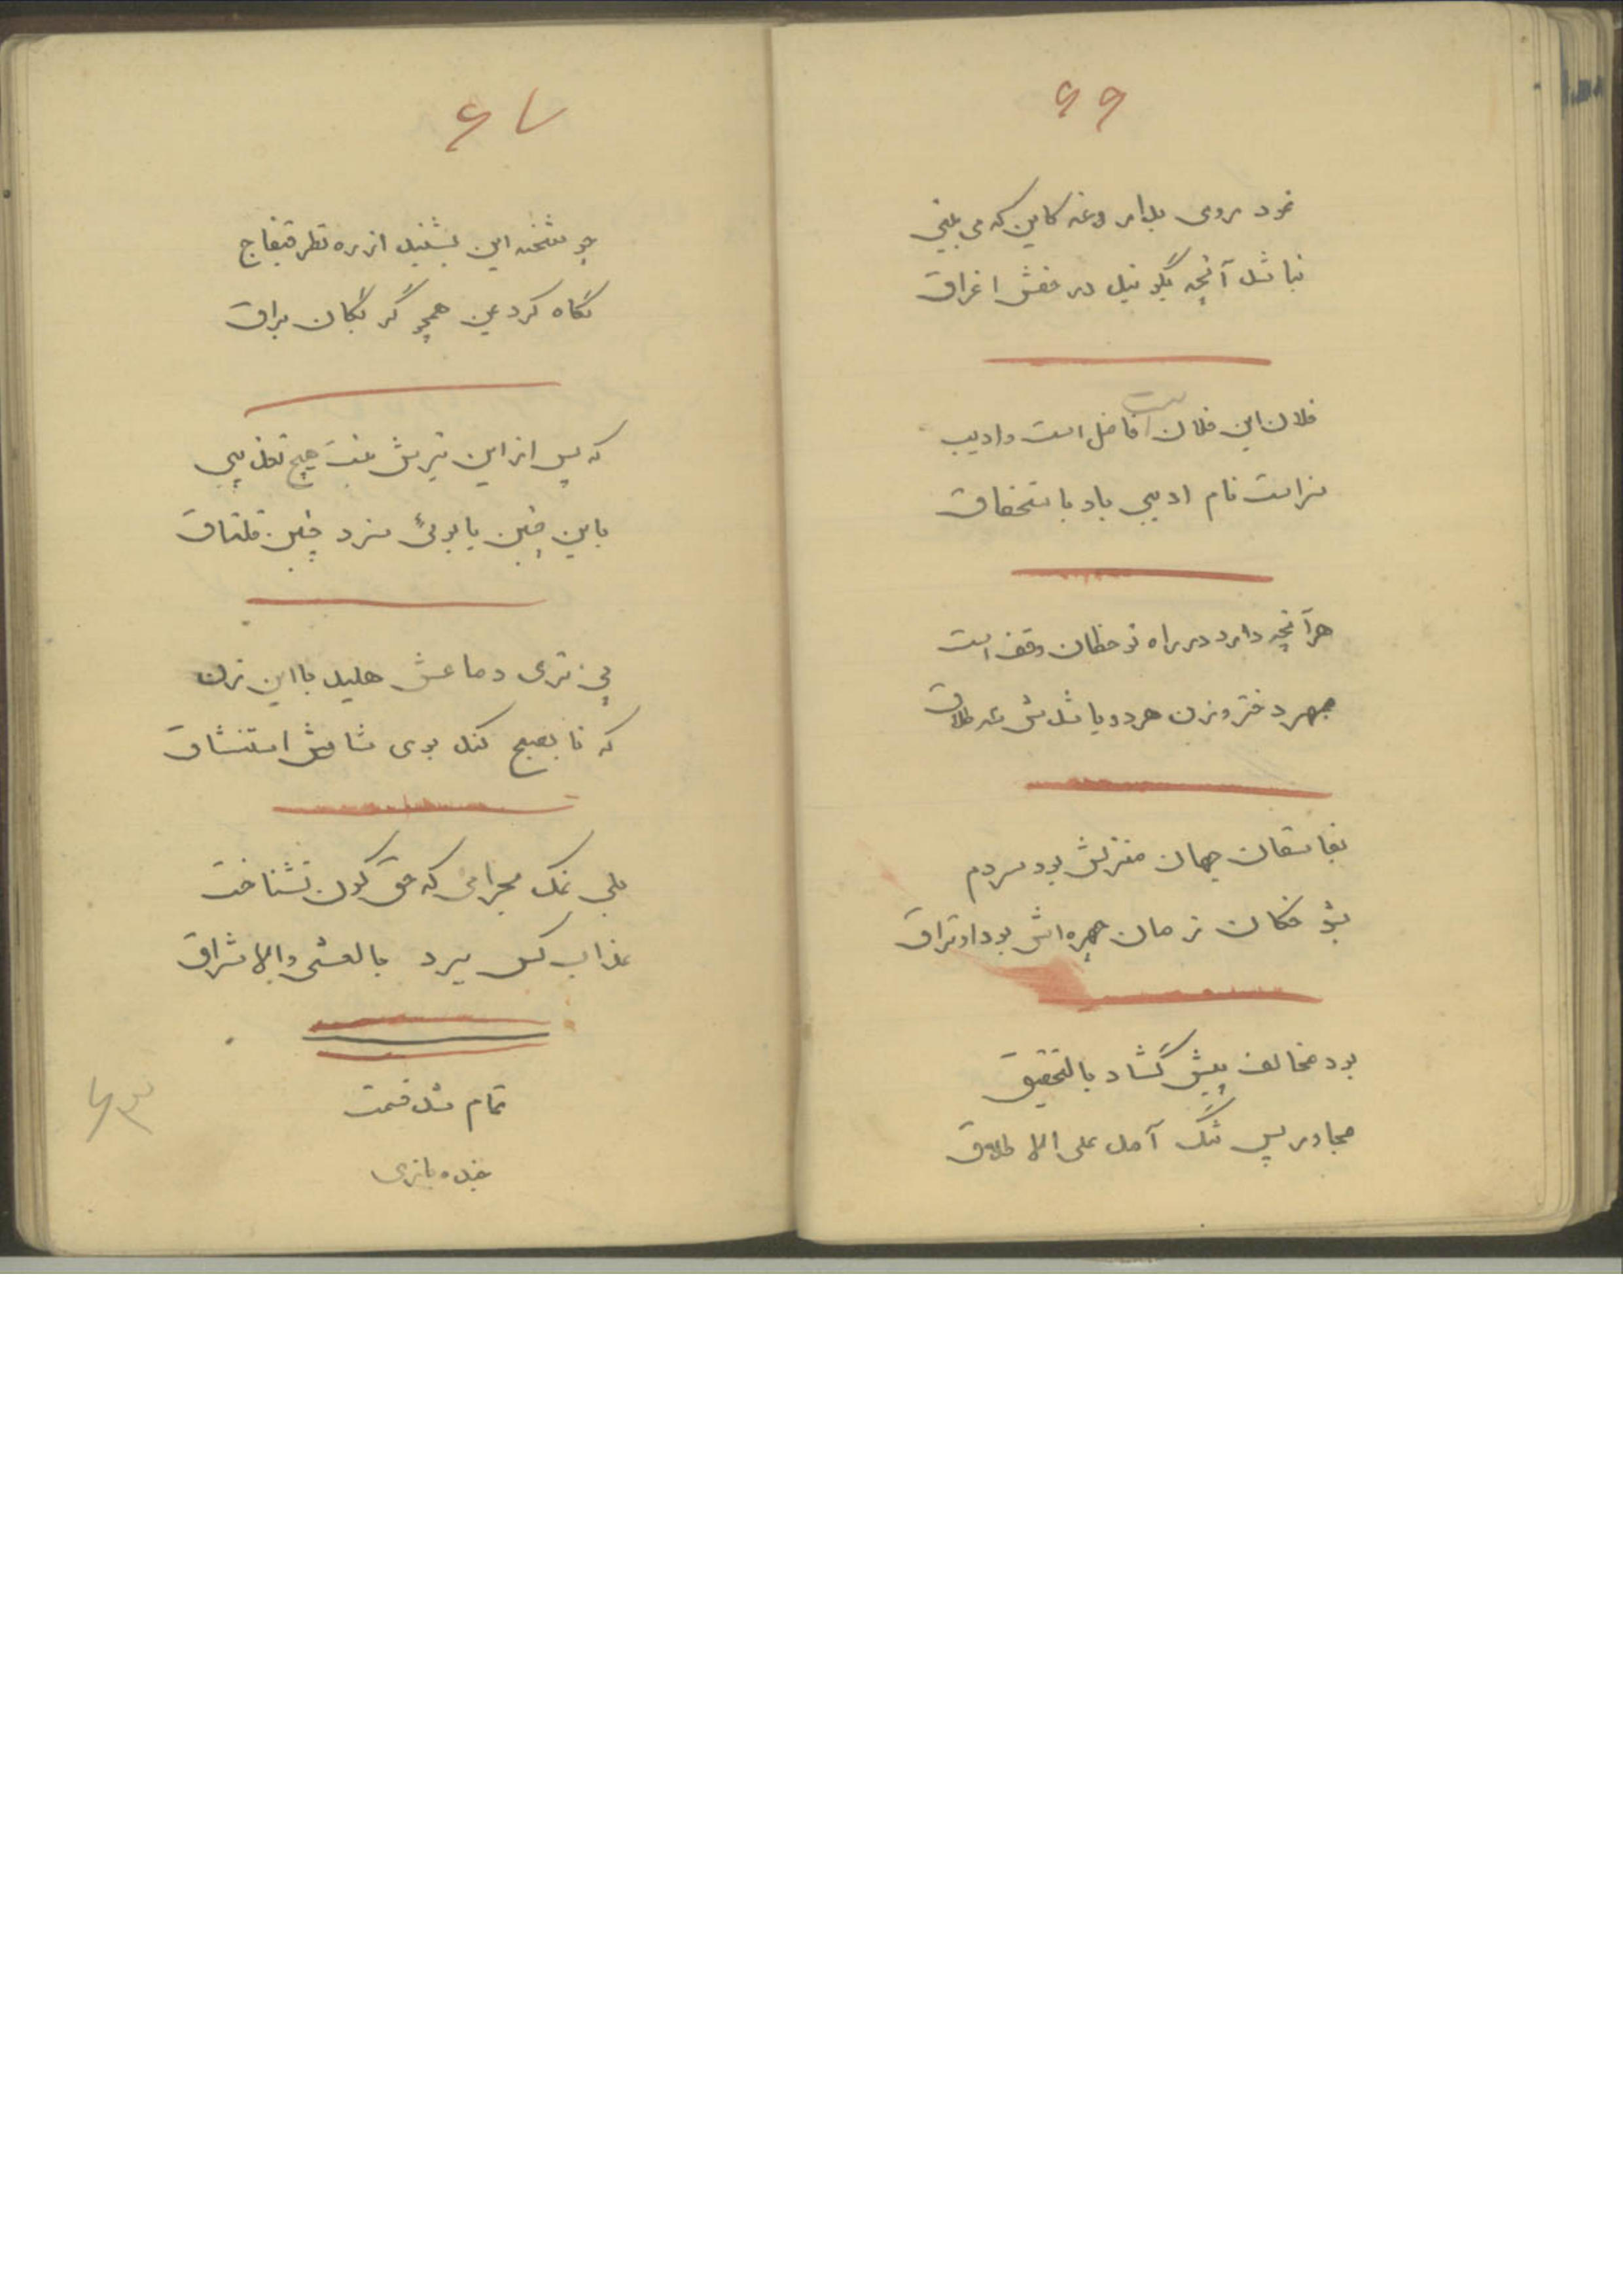 ۶۶
نمود روی بدار وغه کاین که می بینی
نباشد آنچه بگوئید در حقش اغراق
فلان ابن فلان فاضل است و ادیب
سزاست نام ادیبی باو باستحقاق
هرآنچه دارد در راه نوخطان وقف است
بمهر دختر و زن هر دو پا شدش طلاق
بفاسقان جهان منزلش بود
خکان زمان چهره اش بود
بود مخالف پیشش گشاد بالتحقیق
مجاور پس تنگ آمد علی الاطلاق
۶۷
چو شحنه این بشنید از ره
نگاه کرد بمن همچو گربگان براق
که پس از این ریش نیست هیچ
باین چنین یابوئی سزد چنین قلتاق
پی تری دماغش هلید با این زن
که تا بصبح کند بوی استنشاق
بلی نمک بحرامی که حق کون نشناخت
عذاب کس ببرد بالعشی والاشراق
تمام شد قسمت
بازی
۶۳